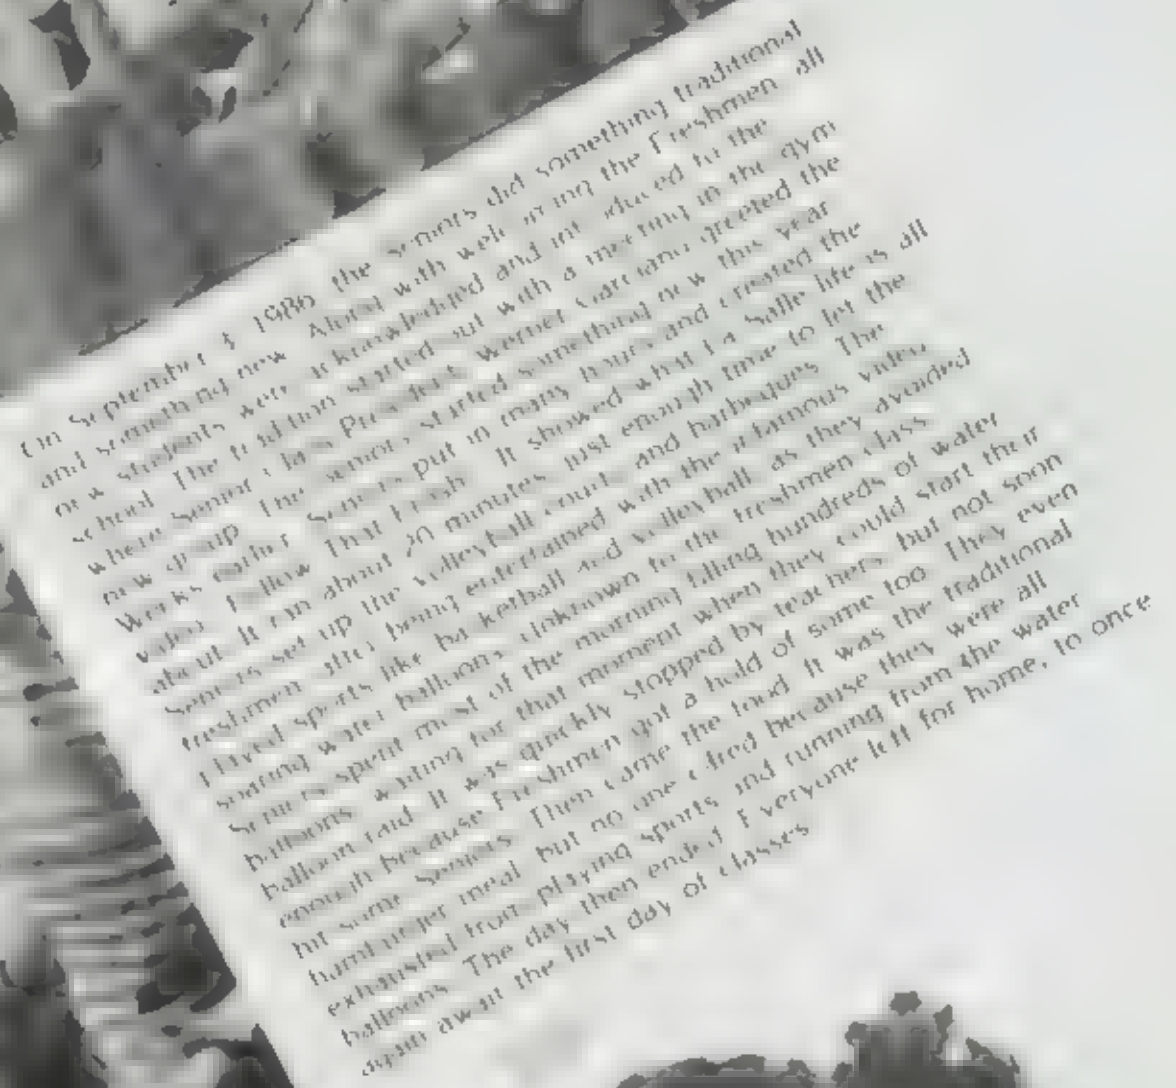 On September 1, 1986 the seniors did something traditional
and something new. Along with welcoming the Freshmen, all
new students were acknowledged and introduced to the
school. The tradition started out with a meeting in the gym
where Senior Class President Werner greeted the
new group. The seniors started something new this year
Weeks earlier Seniors put in many hours and created the
video Follow That Frosh. It showed what La Salle life is all
about. It ran about 20 minutes, just enough time to let the
Seniors set up the volleyball courts and barbeques. The
freshmen after being entertained with the infamous video,
played sports like basketball and volleyball, as they avoided
soaring water balloons. Unknown to the freshmen class
Seniors spent most of the morning filling hundreds of water
balloons waiting for that moment when they could start their
balloon raid. It was quickly stopped by teachers but not soon
enough because Freshmen got a hold of some too. They even
hit some Seniors. Then came the food. It was the traditional
hamburger meal but no one cared because they were all
exhausted from playing sports and running from the water
balloons. The day then ended. Everyone left for home, to once
again await the first day of classes